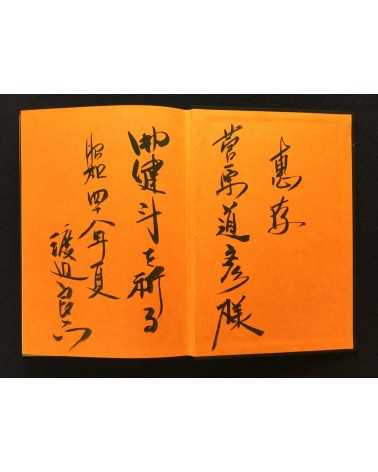 恵存
菅原道彦様
御健斗を祈る
昭和四十八年夏
渡辺